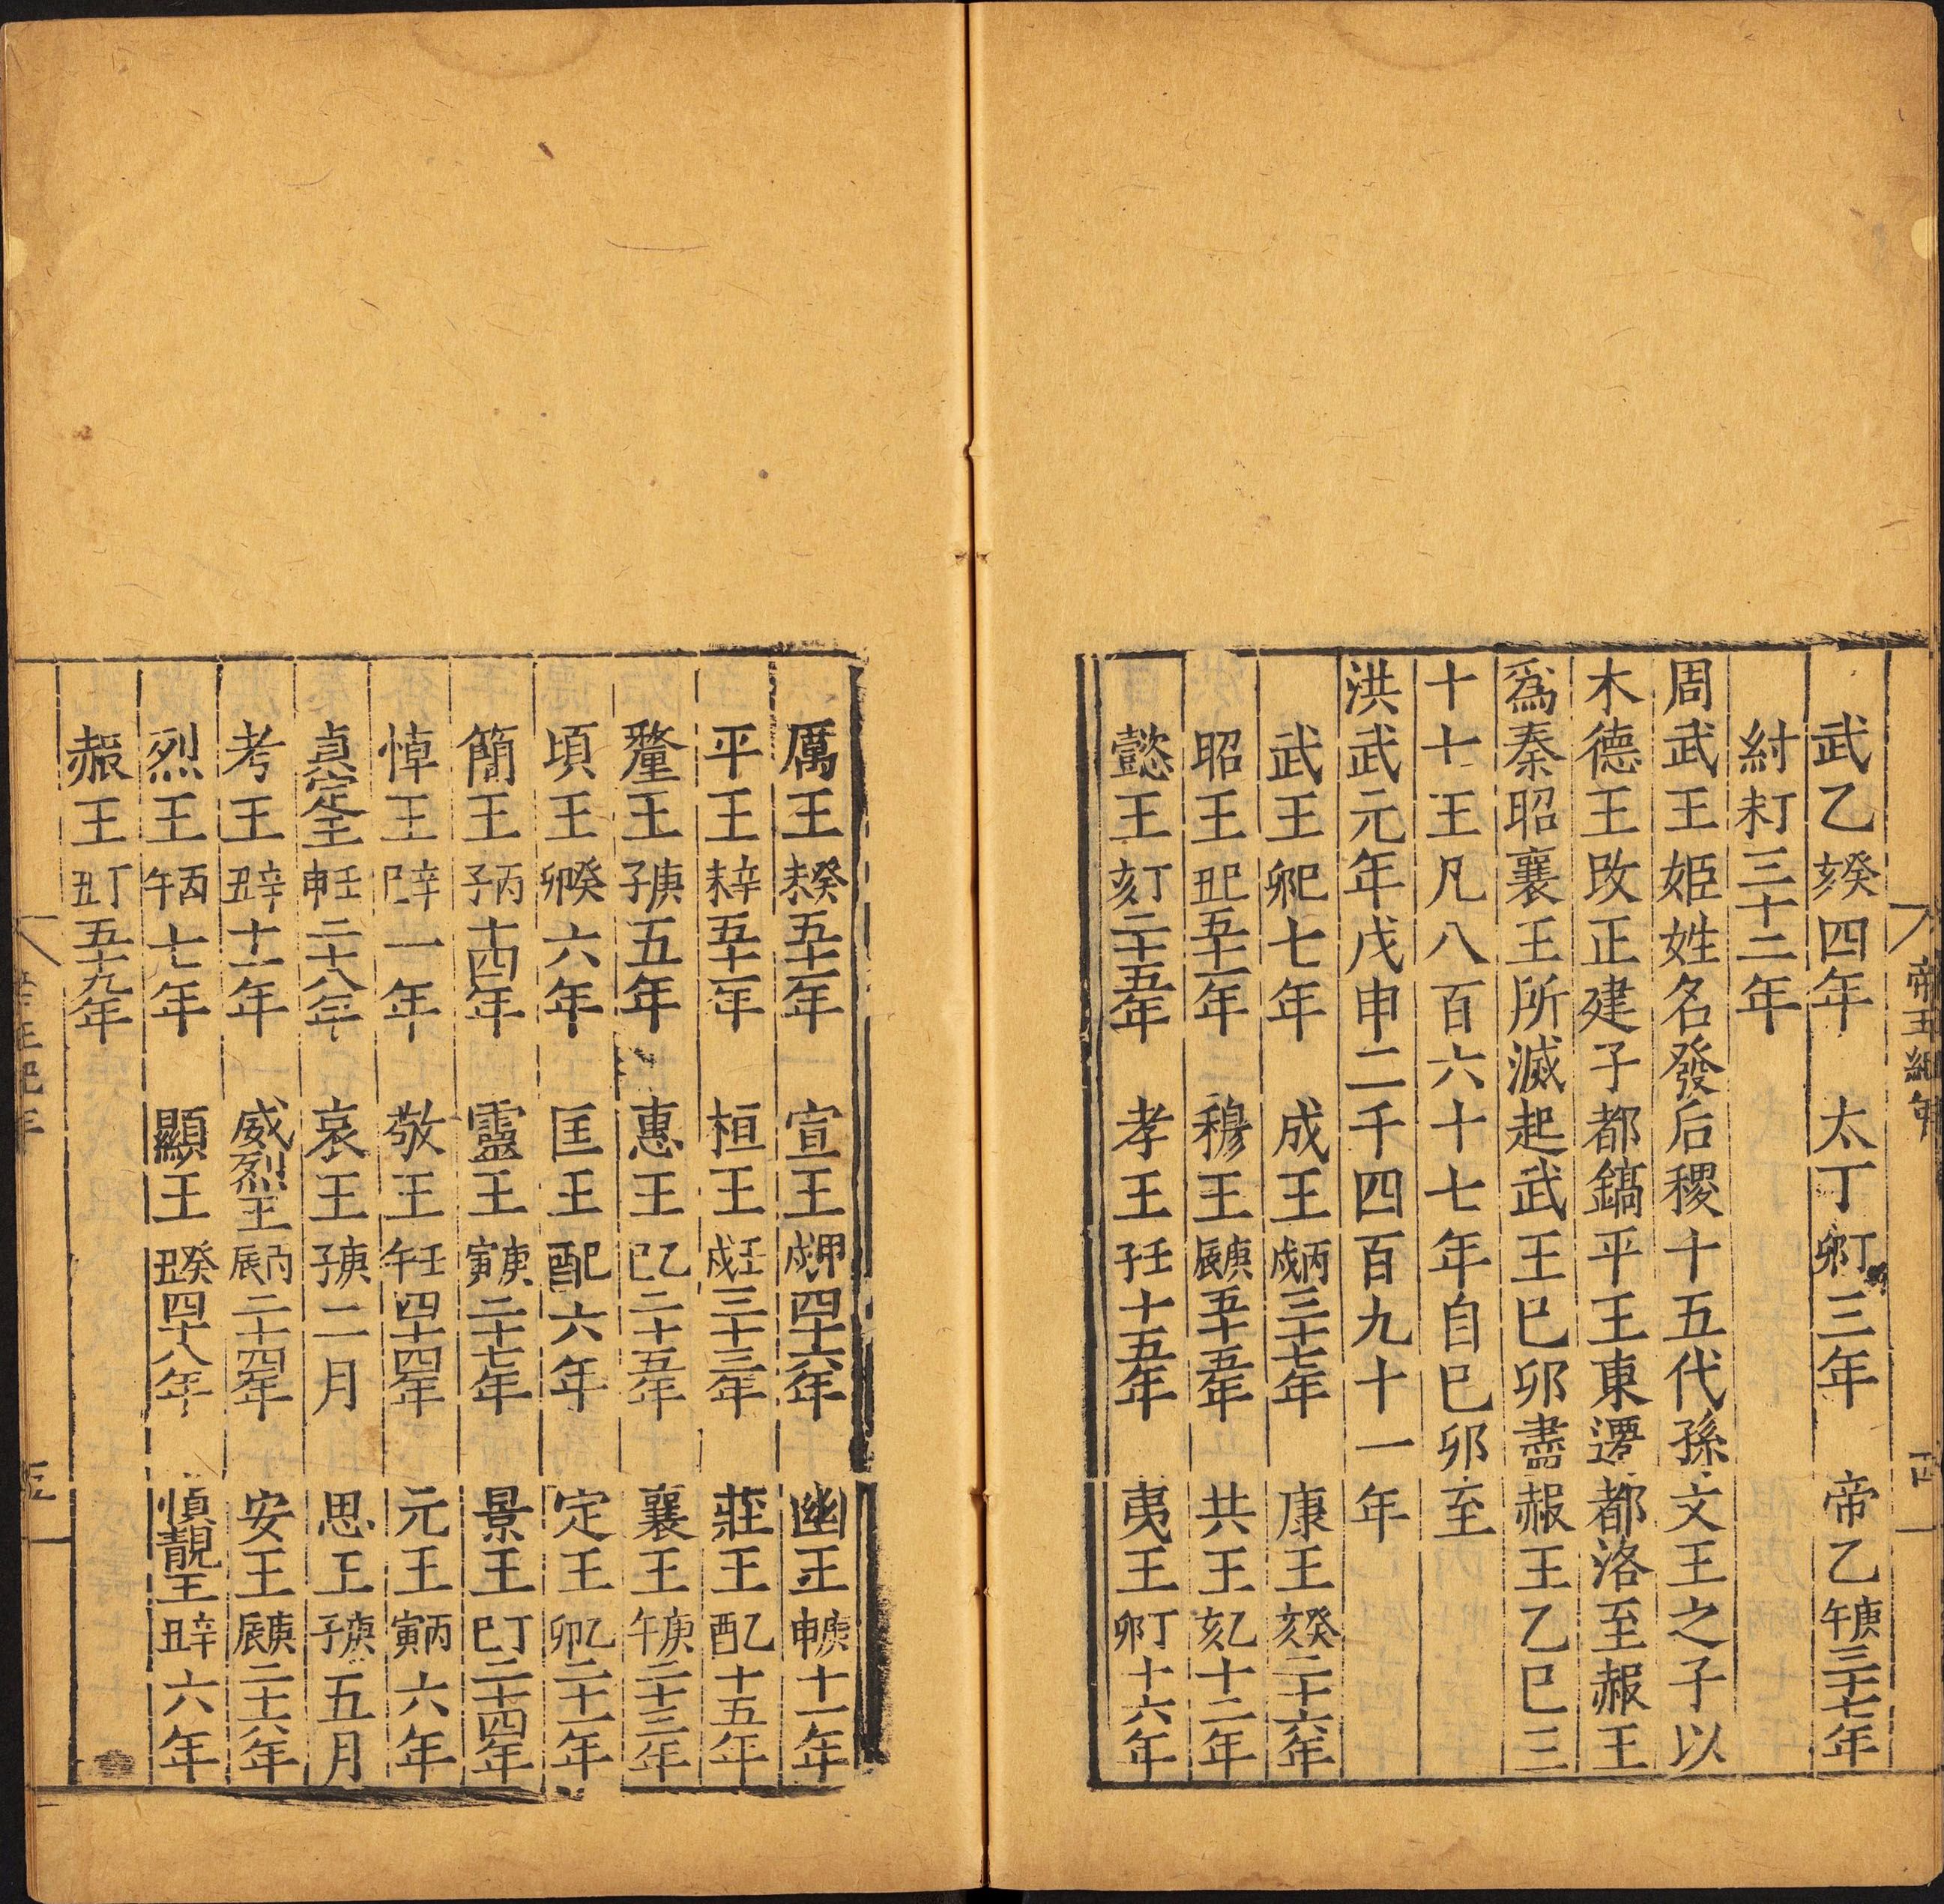 帝王紀年
四
武乙癸亥四年 太丁丁卯三年 帝乙庚午三十七年
紂丁未三十二年
周武王姬姓名發后稷十五代孫文王之子以
木德王改正建子都鎬平王東遷都洛至赧王
爲秦昭襄王所滅起武王巳卯盡赧王乙巳三
十七王凡八百六十七年自巳卯至
洪武元年戊申二千四百九十一年
武王巳卯七年 成王丙戍三十七年 康王癸亥二十六年
昭王巳丑五十一年 穆王庚辰五十五年 共王乙亥十二年
懿王丁亥二十五年 孝王壬子十五年 夷王丁卯十六年
厲王癸未五十一年 宣王甲戍四十六年 幽王庚申十一年
平王辛未五十一年 桓王壬戍二十三年 莊王乙酉十五年
釐王庚子五年 惠王乙巳二十五年 襄王庚午三十三年
頃王癸卯六年 匡王巳酉六年 定王乙卯二十一年
簡王丙子十四年 靈王庚寅二十七年 景王丁巳二十四年
悼王辛巳一年 敬王壬午四十四年 元王丙寅六年
貞定王壬申二十八年 哀王庚子二月 思王庚子五月
考王辛丑十一年 威烈王丙辰二十四年 安王庚辰二十六年
烈王丙午七年 顯王癸丑四十八年 慎靚王辛丑六年
赧王丁丑五十九年
王紀年
五